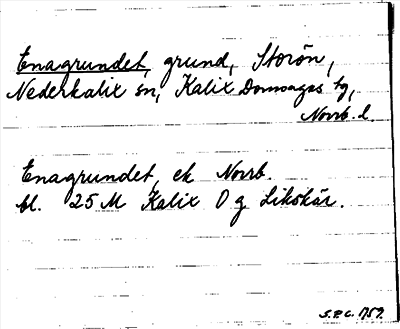 Enagrundet, grund, Storön,
Nederkalix sn, Kalix Domsagas tg,
Norrb. l.
Enagrundet, ek Norrb.
bl. 25 M Kalix O g Likskär.
S.P.C. 1759.